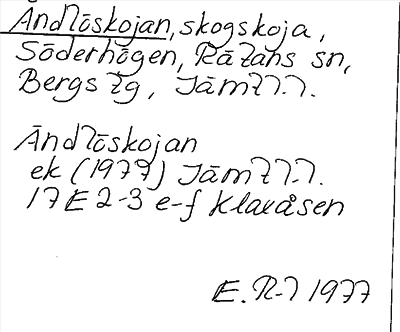 Ändlöskojan, skogskoja,
Söderhögen, Rätans sn,
Bergs tg, Jämtl.
Ändlöskojan
ek (1977) Jämtl.
17E 2-3 e-f Klaxåsen
E. R-7 1977